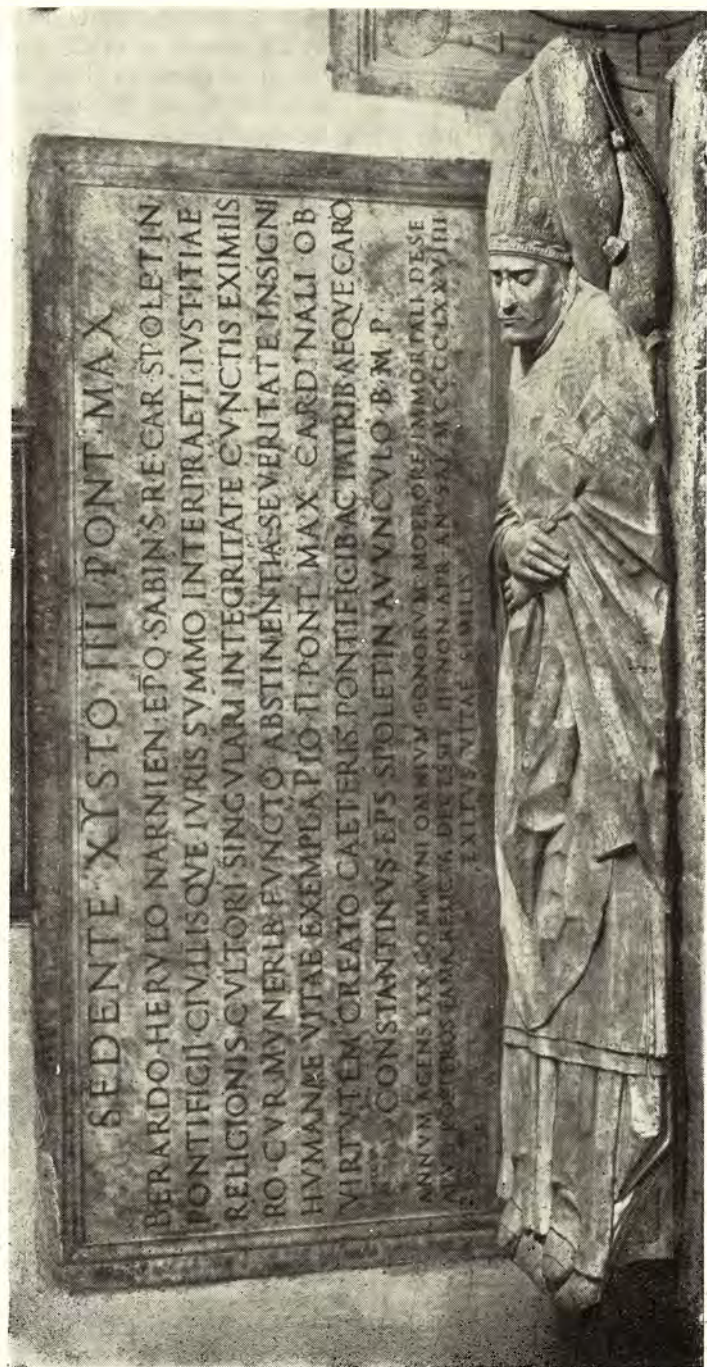 SEDENTE XYSTO IIII PONT MAX
BERARDO HERVLO NARNIEN EPO SABINS RE CAR SPOLETIN
PONTIFICII CIVILISQVE IVRIS SVMMO INTERPRAETI IVSTITIAE
RELIGIONIS CVLTORI SINGVLARI INTEGRITATE CVNCTIS EXIMIIS
RO CVR MVNERIB FVNCTO ABSTINENTIA SEVERITATE INSIGNI
HVMANAE VITAE EXEMPLA PIO II PONT MAX CARDINALI OB
VIRTVTEM CREATO CAETERIS PONTIFICIB AC PATRIB AEQVE CARO
CONSTANTINVS EPS SPOLETIN AVVNCVLO B M P
ANNVM AGENS LXX COMMVNI OMNIVM BONORVM MOERORE IMMORTALI DE SE
POSTEROS FAMA RELICTA DECESSIT III NON APR AN SAL MCCCCLXXVIIII
EXITVS VITAE SIMILIS